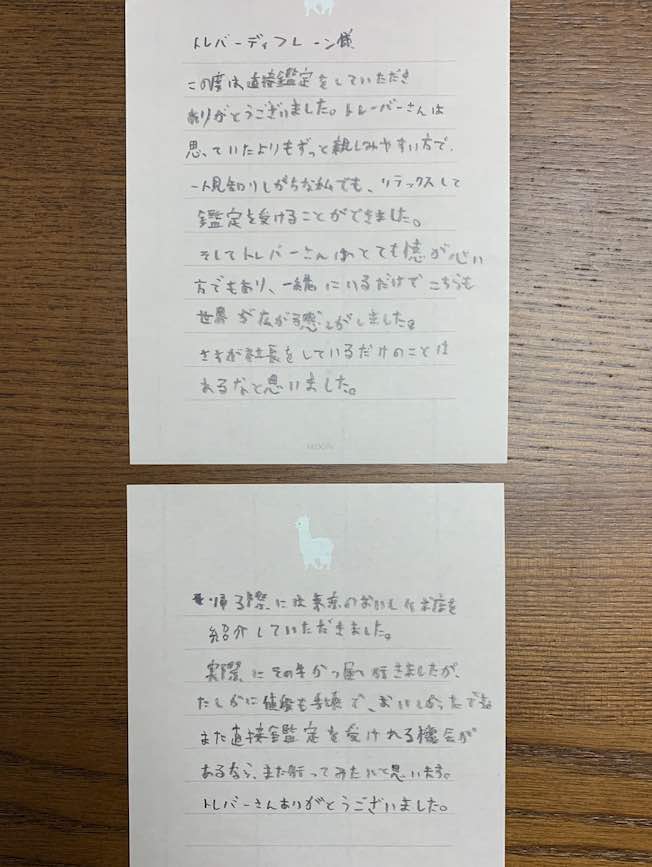 トレバーディフレーン様
この度は、直接鑑定をしていただき
ありがとうございました。トレーバーさんは
思っていたよりもずっと親しみやすい方で、
人見知りしがちな私でも、リラックスして
鑑定を受けることができました。
そしてトレバーさんはとても憶が心い
方でもあり、一緒にいるだけでこちらも
世界が広がる感じがしました。
さすが社長をしているだけのことは
あるなと思いました。
帰る際には東京のおいしいお店を
紹介していただきました。
実際にその牛かつ屋へ行きましたが、
たしかに値段も手頃で、おいしかったです。
また直接鑑定を受けれる機会が
あるなら、また行ってみたいと思います。
トレバーさんありがとうございました。